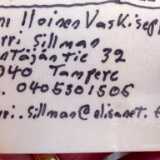 ni Iloinen Vaskisepp
rri Sillman
ntäjäntie 32
040 Tampere
. 0405301505
rri.sillman@elisanet.f